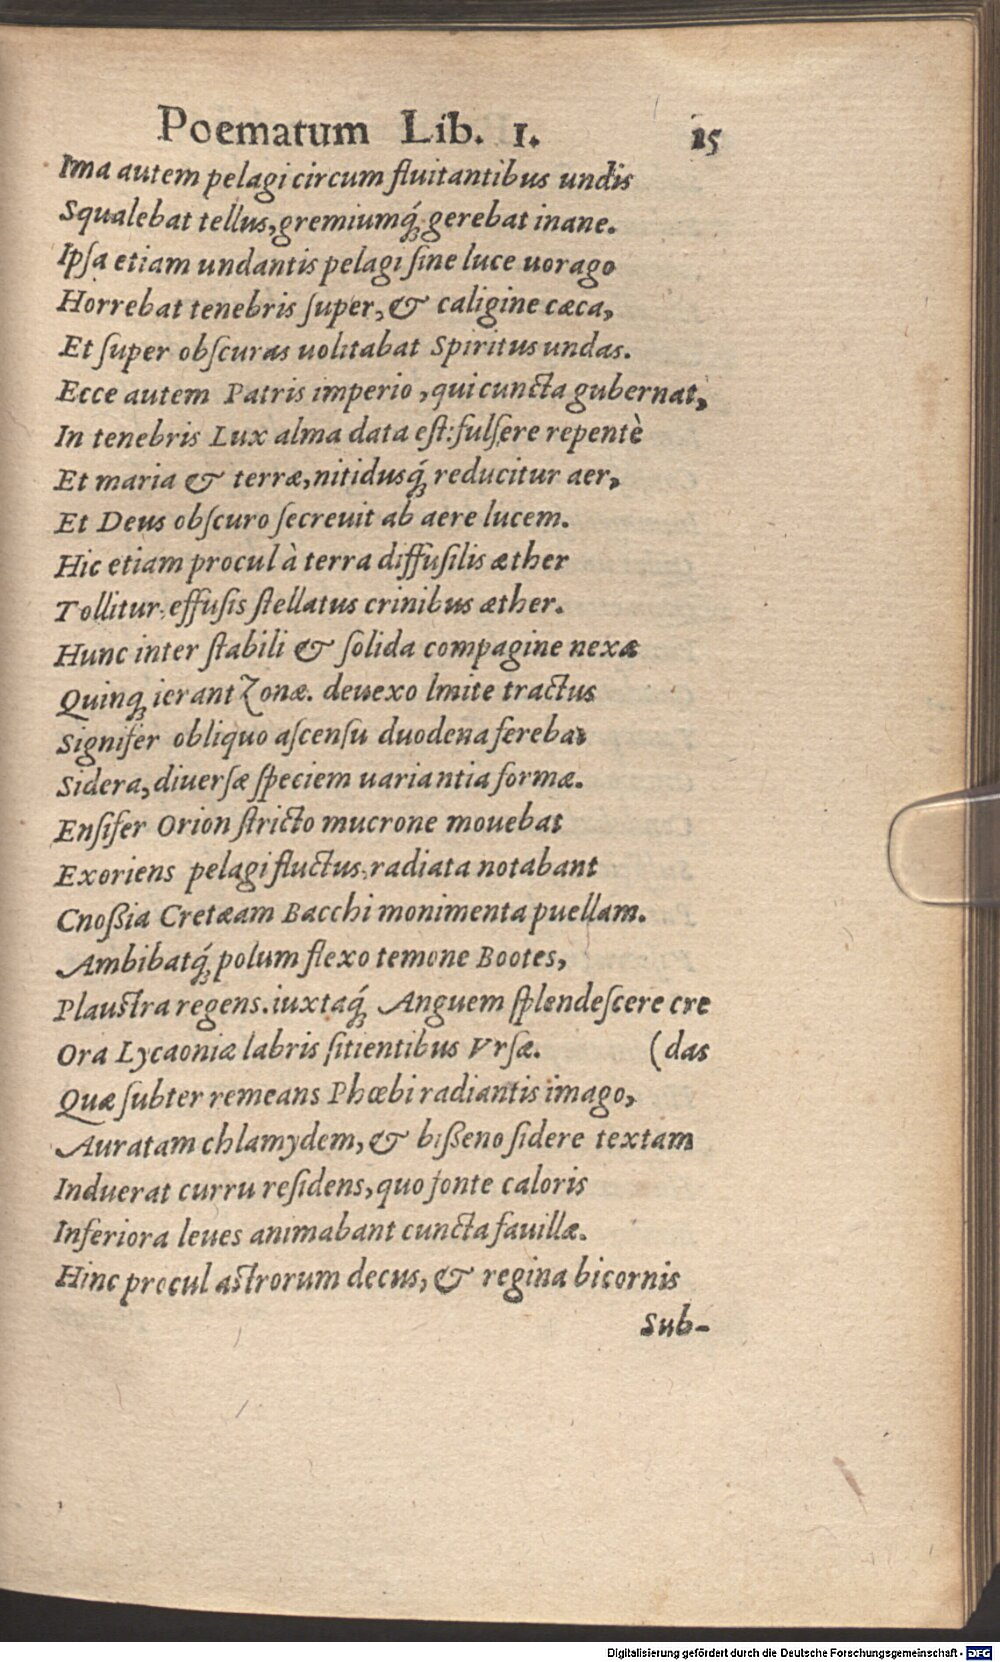 Poematum Lib. 1. 15
Ima autem pelagi circum fluitantibus undis
Squalebat tellus, gremiumq́; gerebat inane.
Ipſa etiam undantis pelagi ſine luce uorago
Horrebat tenebris ſuper, & caligine cæca,
Et ſuper obſcuras uolitabat Spiritus undas.
Ecce autem Patris imperio, qui cuncta gubernat,
In tenebris Lux alma data eſt: fulſere repentè
Et maria & terræ, nitidusq́; reducitur aer,
Et Deus obſcuro ſecreuit ab aere lucem.
Hic etiam procul à terra diffuſilis æther
Tollitur, effuſis ſtellatus crinibus æther.
Hunc inter ſtabili & ſolida compagine nexæ
Quinq; ierant Zonæ. deuexo lmite tractus
Signifer obliquo aſcenſu duodena ferebat
Sidera, diuerſæ ſpeciem uariantia formæ.
Enſifer Orion ſtricto mucrone mouebat
Exoriens pelagi fluctus, radiata notabant
Cnoßia Cretæam Bacchi monimenta puellam.
Ambibatq́; polum flexo temone Bootes,
Plauſtra regens. iuxtaq́; Anguem ſplendeſcere cre
Ora Lycaoniæ labris ſitientibus Vrſæ. (das
Quæ ſubter remeans Phœbi radiantis imago,
Auratam chlamydem, & bißeno ſidere textam
Induerat curru reſidens, quo fonte caloris
Inferiora leues animabant cuncta fauillæ.
Hinc procul aſtrorum decus, & regina bicornis
Sub-
Digitalisierung gefördert durch die Deutsche Forschungsgemeinschaft - DFG